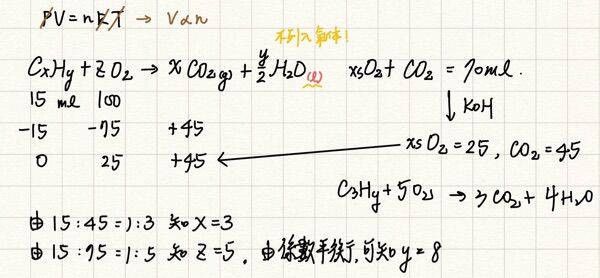 PV = nRT → V∝n
不列入氣体!
CxHy + ZO2 → xCO2(g) + y/2 H2O(l)   xsO2 + CO2 = 70ml.
15 ml 100
↓ KOH
-15 -75 +45
xsO2 = 25, CO2 = 45
0 25 +45 ←
C3Hy + 5O2 → 3CO2 + 4H2O
由 15:45 = 1:3 知 X = 3
由 15:75 = 1:5 知 Z = 5. 由係數平衡, 可知 y = 8